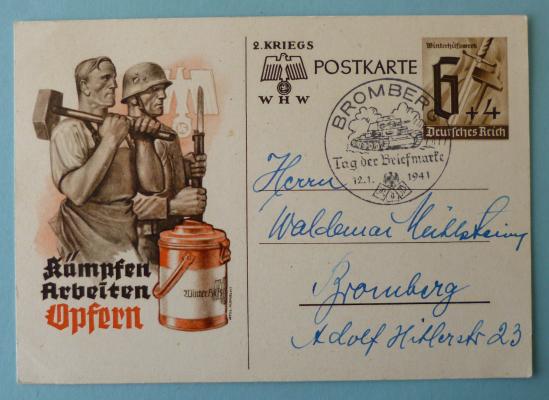 2. KRIEGS
WHW
POSTKARTE
Winterhilfswerk
6+4
Deutsches Reich
BROMBERG
Tag der Briefmarke
12.1. 1941
Herrn
Waldemar
Bromberg
Adolf Hitlerstr 23
Kämpfen
Arbeiten
Opfern